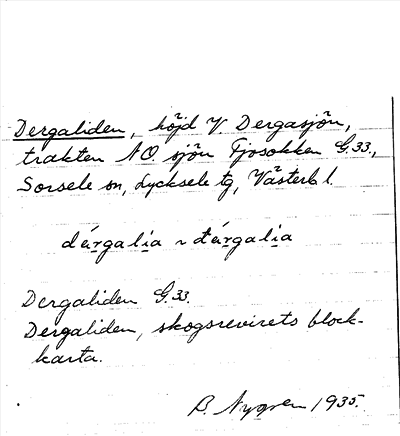 Dergaliden, höjd V. Dergasjön,
trakten NO. sjön Fjosokken G.33.,
Sorsele sn, Lycksele tg, Västerb. l.
dɛ́r̥galia ~ đár̥galia
Dergaliden G.33.
Dergaliden, skogsrevirets block-
karta.
B. Nygren 1935.